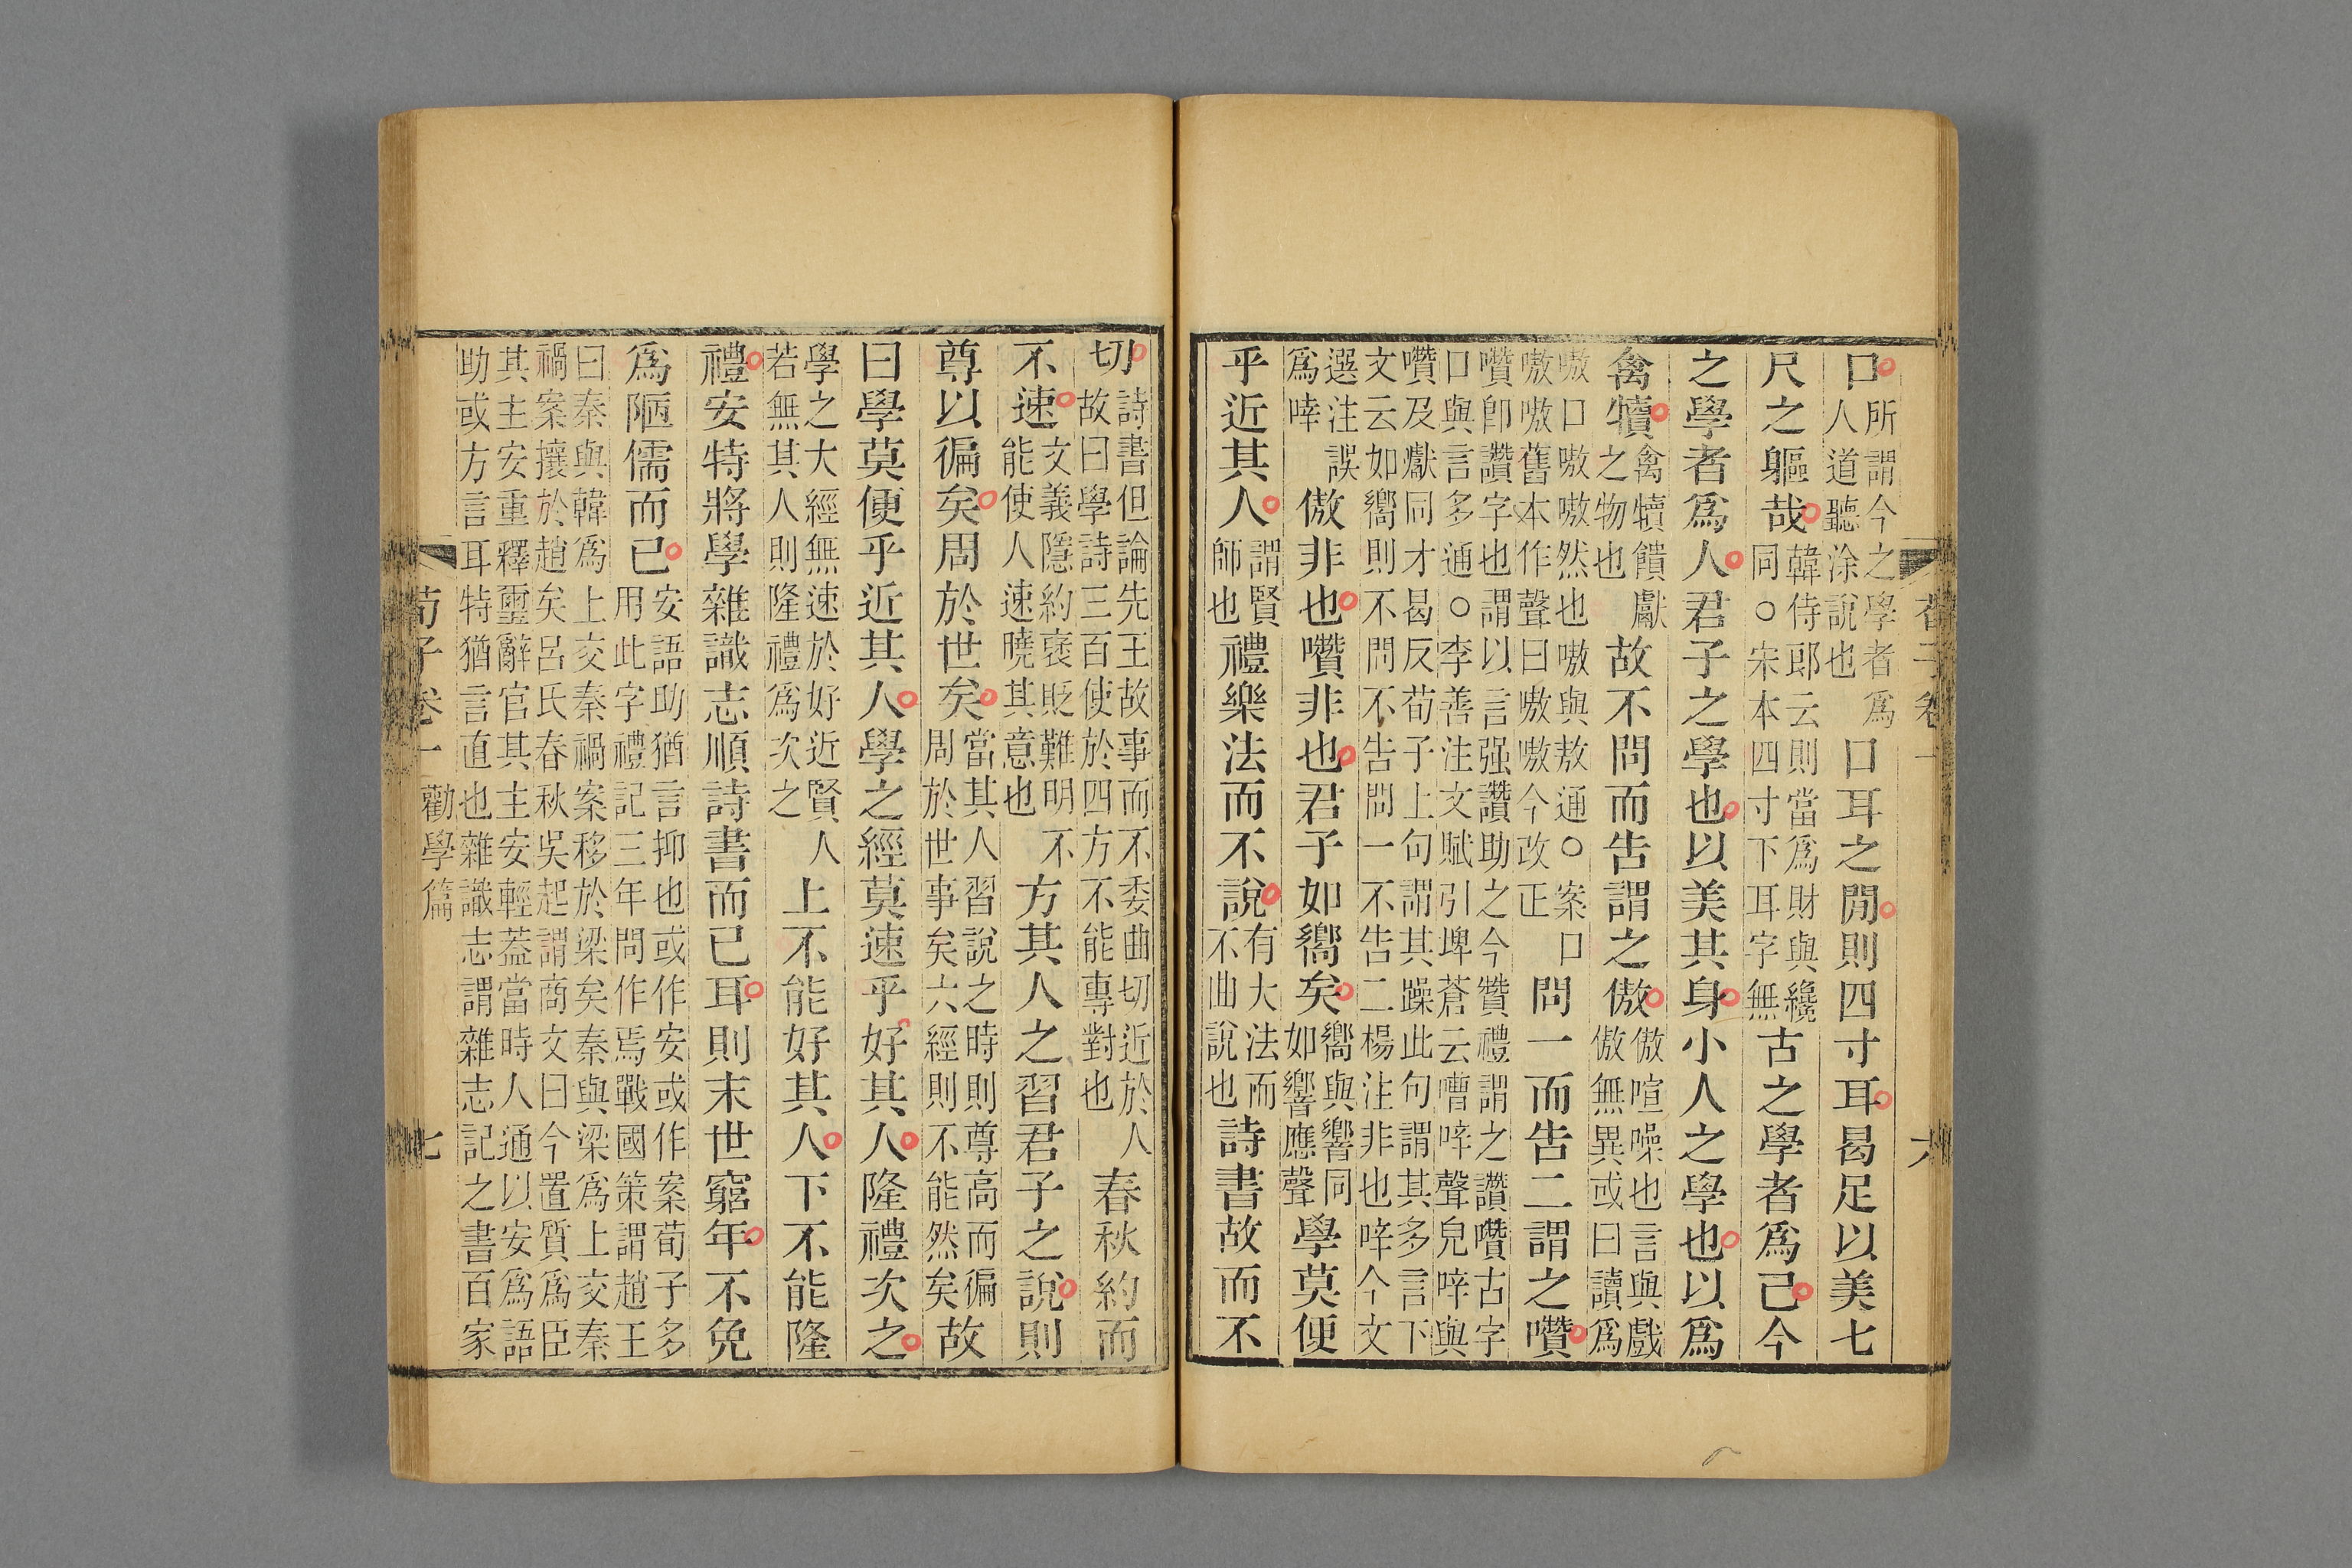 荀子卷一 六
口所謂今之學者爲人道聽涂說也口耳之閒則四寸耳曷足以美七
尺之軀哉韓侍郎云則當爲財與纔同○宋本四寸下耳字無古之學者爲己今
之學者爲人君子之學也以美其身小人之學也以爲
禽犢禽犢饋獻之物也故不問而告謂之傲傲喧噪也言與戲傲無異或曰讀爲
嗷口嗷嗷然也嗷與敖通○案口嗷嗷舊本作聲曰嗷嗷今改正問一而告二謂之囋
囋卽讚字也謂以言强讚助之今贊禮謂之讚囋古字口與言多通○李善注文賦引埤蒼云嘈啐聲皃啐與
囋及㘔同才曷反荀子上句謂其躁此句謂其多言下文云如嚮則不問不告問一不告二楊注非也啐今文
選注誤爲㖕傲非也囋非也君子如嚮矣嚮與響同如響應聲學莫便
乎近其人謂賢師也禮樂法而不說有大法而不曲說也詩書故而不
切詩書但論先王故事而不委曲切近於人故曰學詩三百使於四方不能專對也春秋約而
不速文義隱約褒貶難明不能使人速曉其意也方其人之習君子之說則
尊以徧矣周於世矣當其人習說之時則尊高而徧周於世事矣六經則不能然矣故
曰學莫便乎近其人學之經莫速乎好其人隆禮次之
學之大經無速於好近賢人若無其人則隆禮爲次之上不能好其人下不能隆
禮安特將學雜識志順詩書而已耳則末世窮年不免
爲陋儒而已安語助猶言抑也或作安或作案荀子多用此字禮記三年問作焉戰國策謂趙王
曰秦與韓爲上交秦禍案移於梁矣秦與梁爲上交秦禍案攘於趙矣呂氏春秋吳起謂商文曰今置質爲臣
其主安重釋璽辭官其主安輕蓋當時人通以安爲語助或方言耳特猶言直也雜識志謂雜志記之書百家
荀子卷一 勸學篇 七